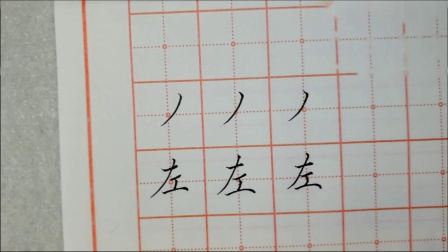 丿丿丿
左左左